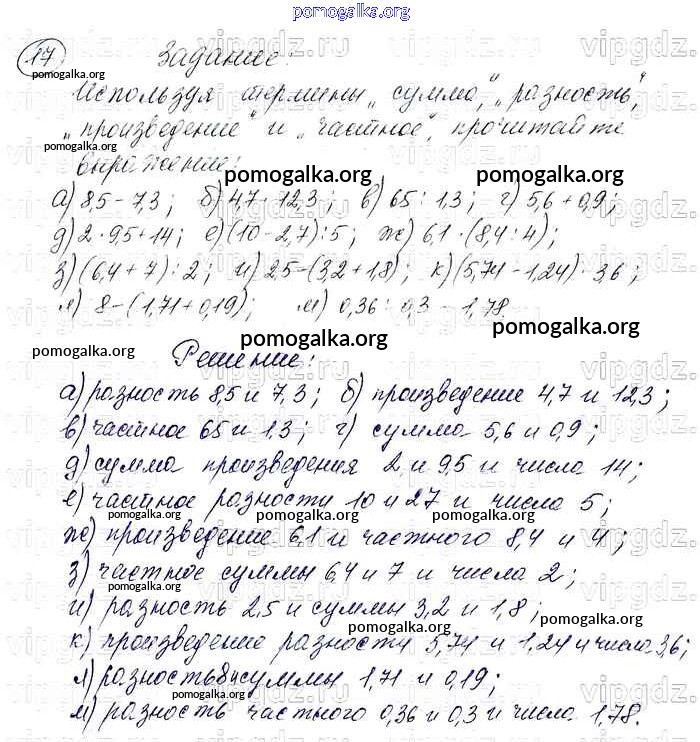 pomogalka.org
17 Задание:
Используя термины „сумма“, „разность“,
„произведение“ и „частное“, прочитайте
выражение:
а) 8,5 - 7,3; б) 4,7 · 12,3; в) 65 : 1,3; г) 5,6 + 0,9;
д) 2 · 9,5 + 14; е) (10 - 2,7) : 5; ж) 6,1 · (8,4 : 4);
з) (6,4 + 7) : 2; и) 2,5 - (3,2 + 1,8); к) (5,74 - 1,24) · 3,6;
л) 8 - (1,71 + 0,19); м) 0,36 : 0,3 - 1,78.
Решение:
а) разность 8,5 и 7,3; б) произведение 4,7 и 12,3;
в) частное 65 и 1,3; г) сумма 5,6 и 0,9;
д) сумма произведения 2 и 9,5 и числа 14;
е) частное разности 10 и 2,7 и числа 5;
ж) произведение 6,1 и частного 8,4 и 4;
з) частное суммы 6,4 и 7 и числа 2;
и) разность 2,5 и суммы 3,2 и 1,8;
к) произведение разности 5,74 и 1,24 и числа 3,6;
л) разность 8 и суммы 1,71 и 0,19;
м) разность частного 0,36 и 0,3 и числа 1,78.